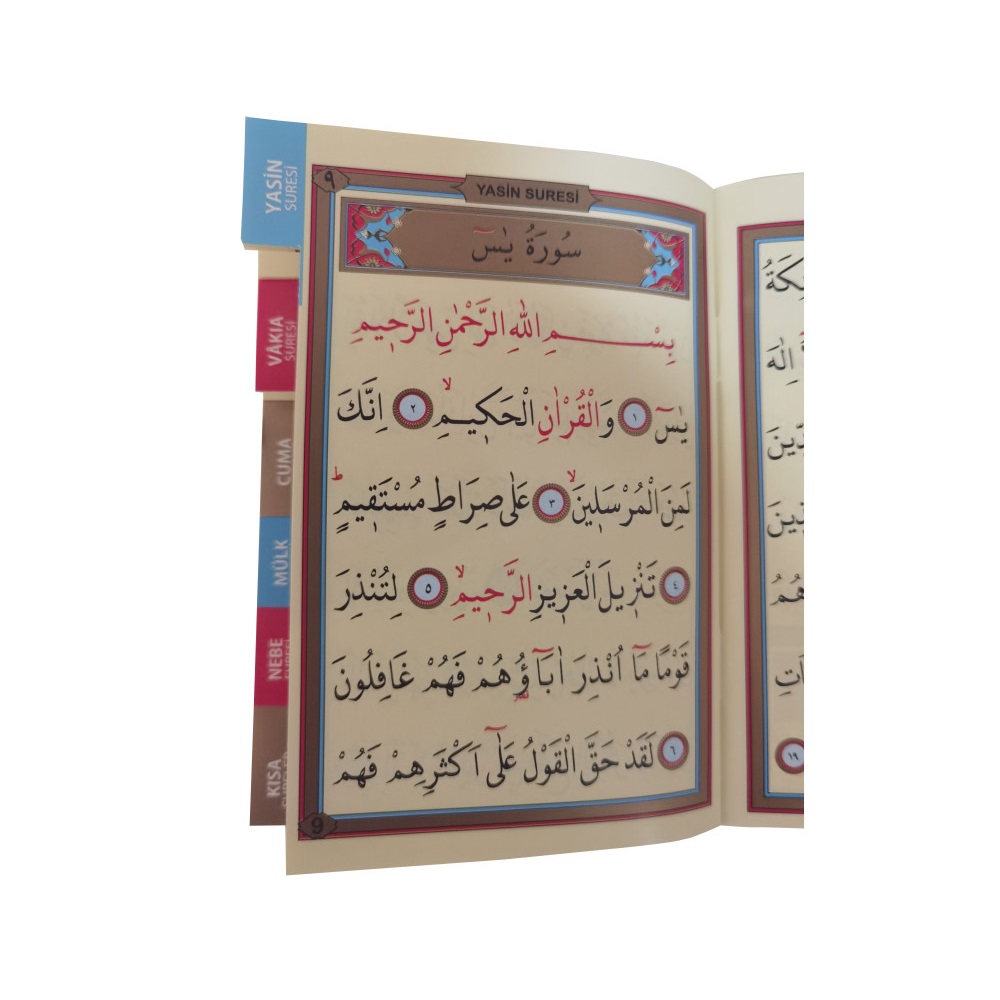 YASİN
SURESİ
VÂKIA
SURESİ
CUMA
MÜLK
NEBE
KISA
٩
YASİN SURESİ
سُورَةُ يٰسٓ
بِسْمِ اللّٰهِ الرَّحْمٰنِ الرَّح۪يمِ
يٰسٓ ١ وَالْقُرْاٰنِ الْحَك۪يمِۙ ٢ اِنَّكَ
لَمِنَ الْمُرْسَل۪ينَۙ ٣ عَلٰى صِرَاطٍ مُسْتَق۪يمٍۜ
٤ تَنْز۪يلَ الْعَز۪يزِ الرَّح۪يمِۙ ٥ لِتُنْذِرَ
قَوْمًا مَٓا اُنْذِرَ اٰبَٓاؤُ۬هُمْ فَهُمْ غَافِلُونَ
٦ لَقَدْ حَقَّ الْقَوْلُ عَلٰٓى اَكْثَرِهِمْ فَهُمْ
9
اِلٰهَ
١٩